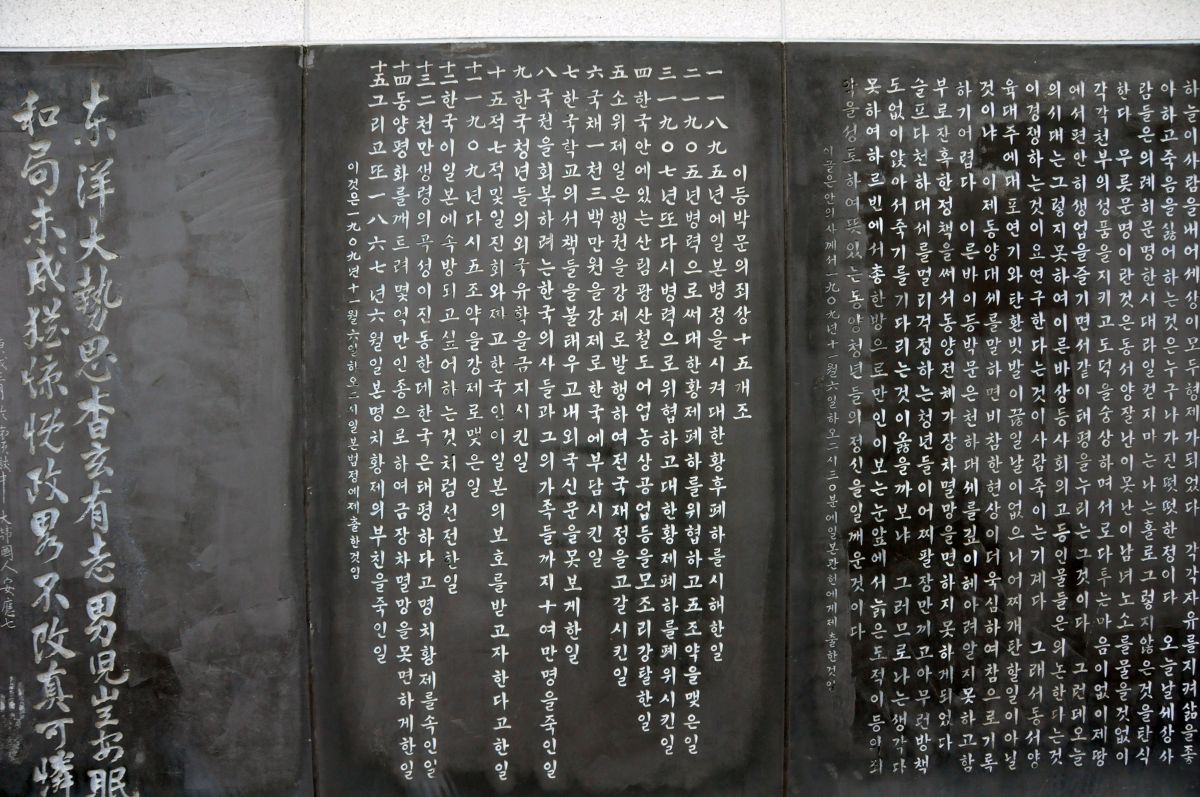 하늘이사람을내어세상이모두형제가되었다 각각자유를지켜삶을좋
아하고죽음을싫어하는것은누구나가진떳떳한정이다 오늘날세상사
람들은의례히문명한시대라일컫지마는나는홀로그렇지않은것을탄식
한다 무릇문명이란것은동서양잘난이못난이남녀노소를물을것없이
각각천부의성품을지키고도덕을숭상하며서로다투는마음이없이제땅
에서편안히생업을즐기면서같이태평을누리는그것이다 그런데오늘
의시대는그렇지못하여이른바상등사회의고등인물들은의논한다는것
이경쟁하는것이요연구한다는것이사람죽이는기계다 그래서동서양
육대주에대포연기와탄환빗발이끊일날이없으니어찌개탄할일이아닐
것이냐 이제동양대세를말하면비참한현상이더욱심하여참으로기록
하기어렵다 이른바이등박문은천하대세를깊이헤아려알지못하고함
부로잔혹한정책을써서동양전체가장차멸망을면하지못하게되었다
슬프다천하대세를멀리걱정하는청년들이어찌팔장만끼고아무런방책
도없이앉아서죽기를기다리는것이옳을까보냐 그러므로나는생각다
못하여하르빈에서총한방으로만인이보는눈앞에서늙은도적이등의죄
악을성토하여뜻있는동양청년들의정신을일깨운것이다
이글은안의사께서一九〇九년十一월六일하오一시三〇분에일본관헌에게제출한것임
이등박문의죄상十五개조
一 一八九五년에일본병정을시켜대한황후폐하를시해한일
二 一九〇五년병력으로써대한황제폐하를위협하고五조약을맺은일
三 一九〇七년또다시병력으로위협하고대한황제폐하를폐위시킨일
四 한국안에있는산림광산철도어업농상공업등을모조리강탈한일
五 소위제일은행권을강제로발행하여전국재정을고갈시킨일
六 국채一천三백만원을강제로한국에부담시킨일
七 한국학교의서책들을불태우고내외국신문을못보게한일
八 국권을회복하려는한국의사들과그의가족들까지十여만명을죽인일
九 한국청년들의외국유학을금지시킨일
十 五적七적및일진회와짜고한국인이일본의보호를받고자한다고한일
十一 一九〇九년다시五조약을강제로맺은일
十二 한국이일본에속방되고싶어하는것처럼선전한일
十三 二천만생령의곡성이진동한데한국은태평하다고명치황제를속인일
十四 동양평화를깨트려몇억만인종으로하여금장차멸망을못면하게한일
十五 그리고또一八六七년六월일본명치황제의부친을죽인일
이것은一九〇九년十一월六일하오二시일본법정에제출한것임
东洋大勢思杳玄有志男児豈安眠
和局未成猶慷慨政畧不改真可憐
大韓國人安應七